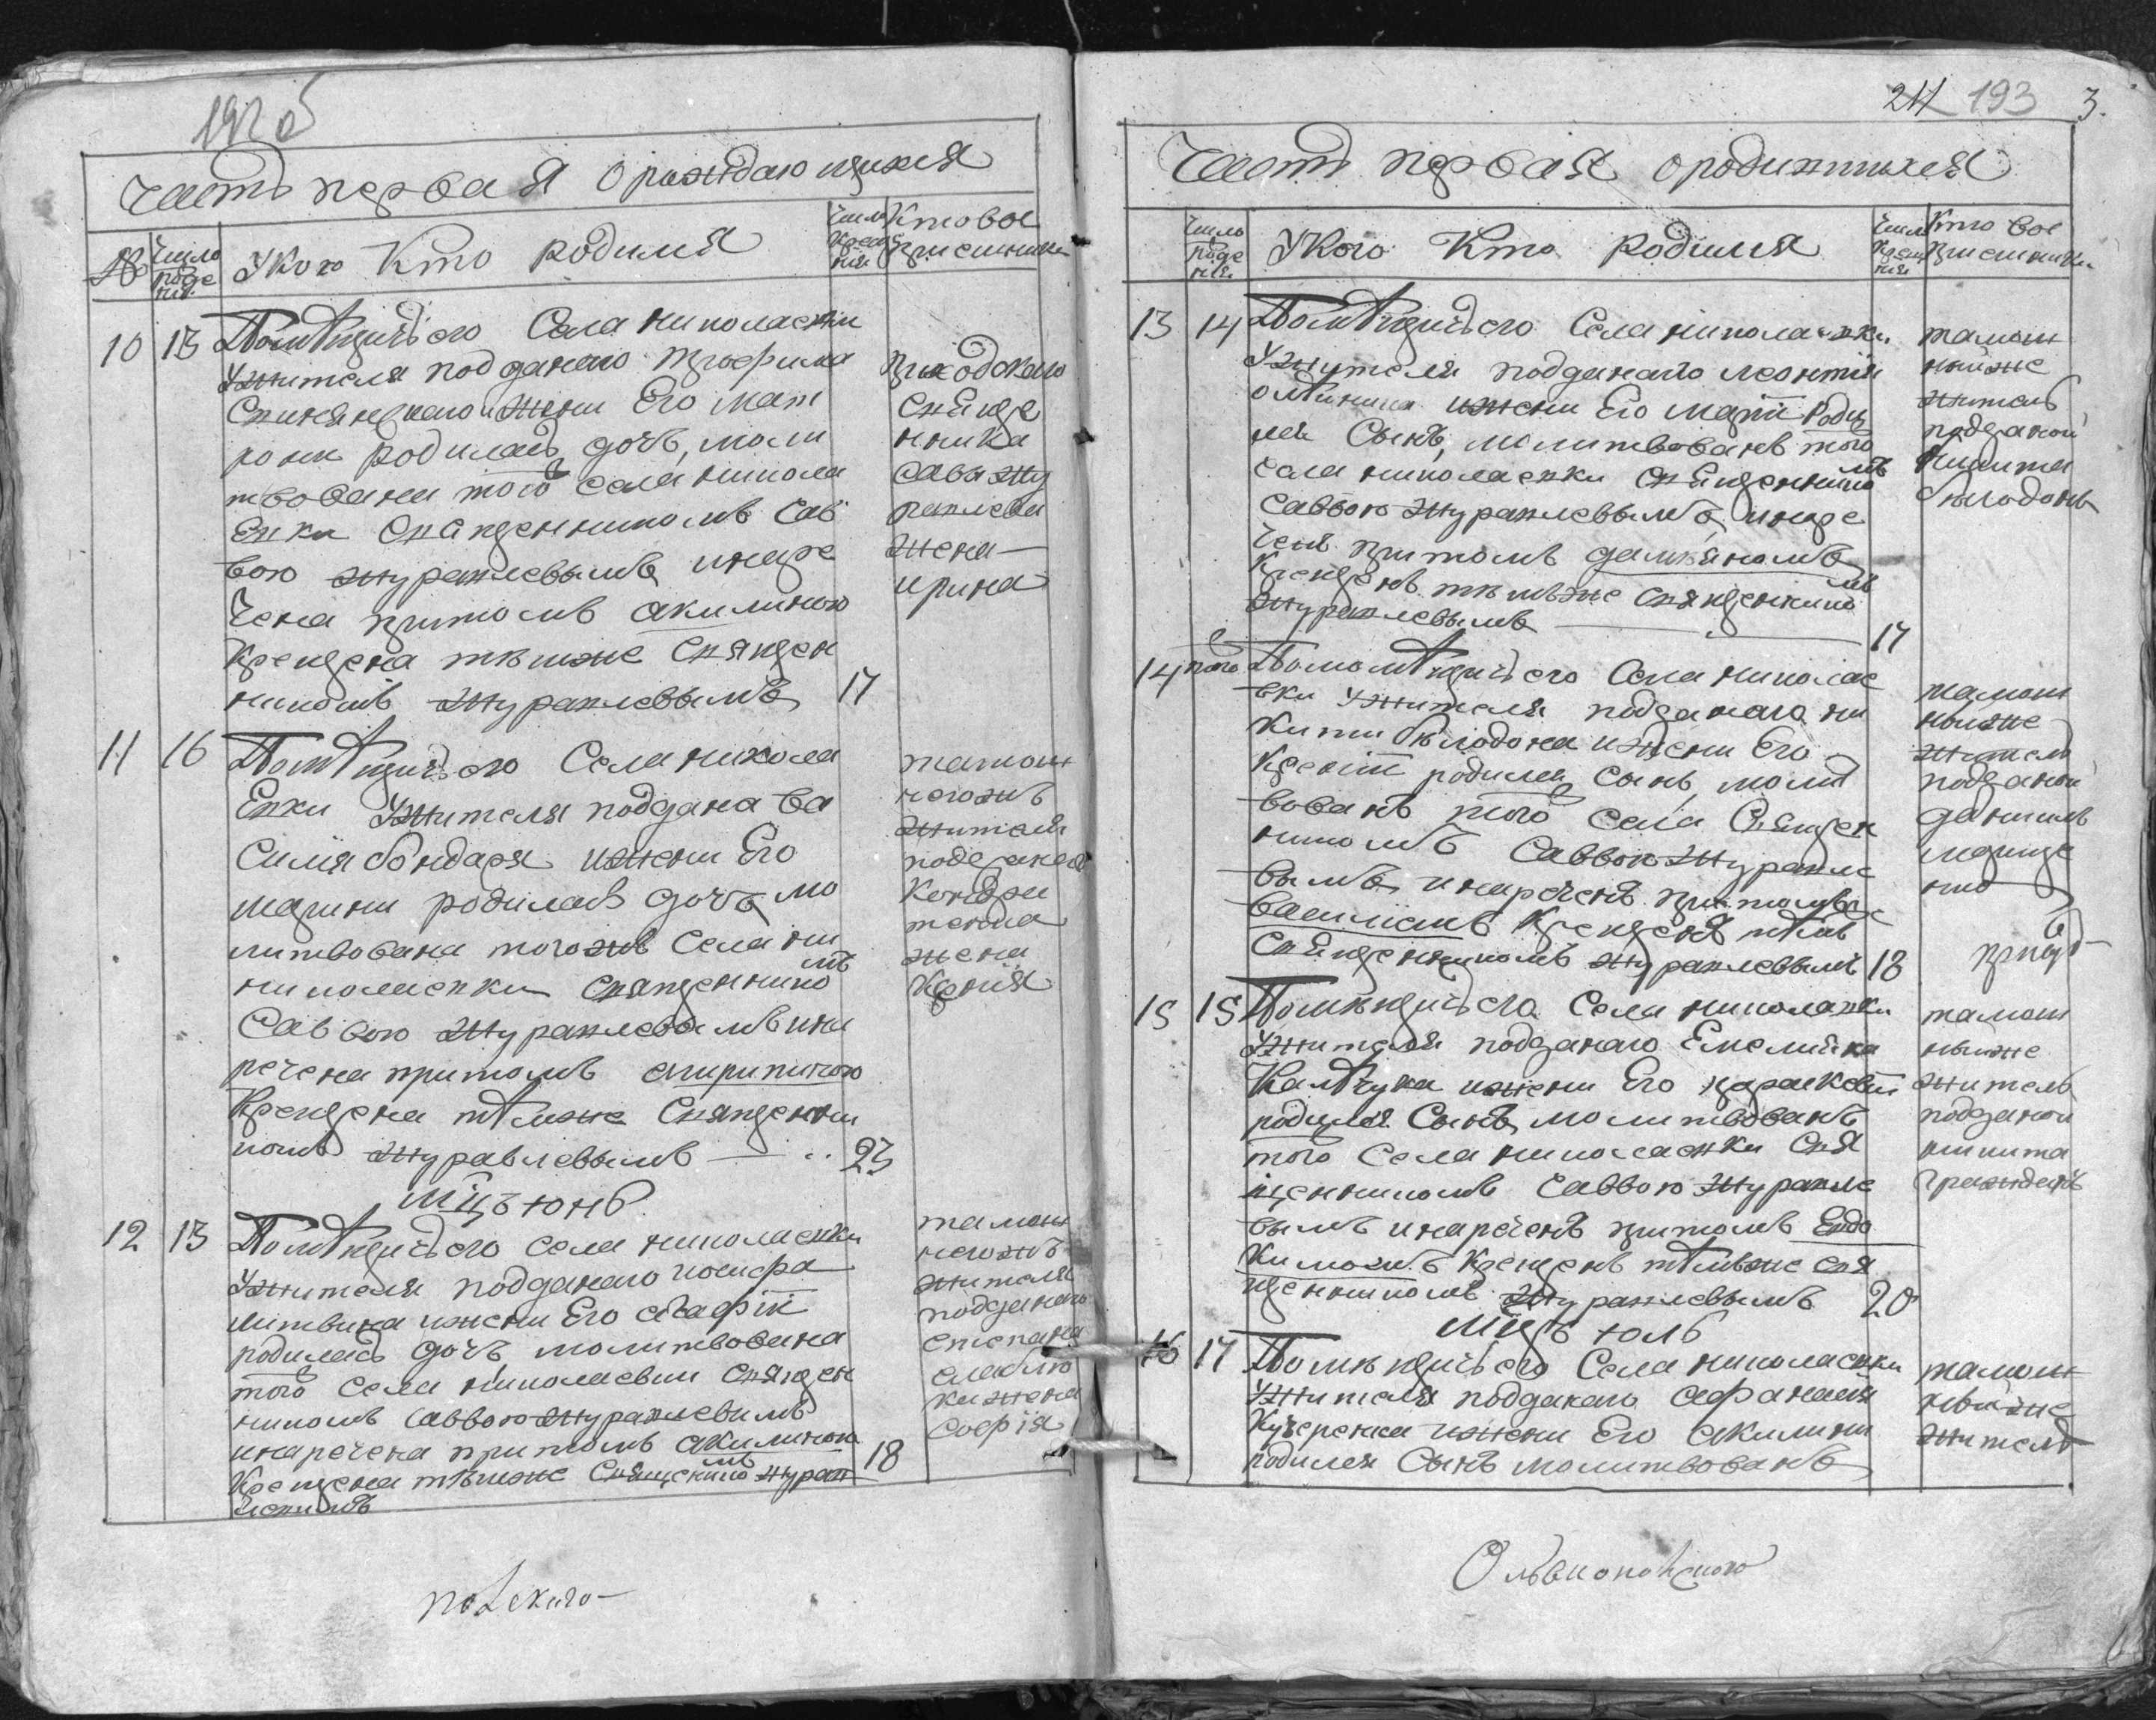 192 об
Часть первая о раждающихся
№ Число рожде нія У кого Кто родился Число Креще нія Кто вос приемники
10 13 Помѣщичьего Села николаевки
У жителяподданаго трофима
и жени Его мат
рони родилась дочь, моли
твована того села никола
Евки Священникомъ Сав
вою журавлевымъ и наре
чена при томъ акилиною
Крещена тѣмже Священ
никомъ журавлевымъ 17
приходскаго
Свяще
нника
Савы жу
равлева
жена
ирина
11 16 Помѣщичьего Села никола
Евки У жителя поддана ва
Силія бондаря и жени Его
марини родилась дочь мо
литвована тогожъ Села ни
николаевки Священникомъ
Саввою Журавлевымъ и на
речена притомъ агрипиною
Крещена тѣмже Священни
комъ журавлевымъ 23
тамош
негожъ
жителя
подданаго
Кондра
тенка
жена
Ксенія
Мцъ юнь
12 13 Помѣщичьего села николаевки
У жителя подданаго иосифа
литвина и жени Его агафіи
родилась дочъ молитвована
того Села николаевки Священ
никомъ Саввою журавлевимъ
и наречена притомъ акилиною 18
Крещена тѣмже Священикомъ журав
левимъ
тамош
негожъ
жителя
подданаго
Степана
жена
Софія
211 193 3.
Часть первая о родившихся
Число рожде нія У кого Кто Родился Число Креще нія Кто вос приемники
13 14 Помѣщичьего Села николаевки
У жителя подданаго леонтія
и жени Его маріи Роди
лся Сынъ, молитвованъ того
села николаевки Священникомъ
Саввою журавлевымъ, и наре
ченъ притомъ даміяномъ
Крещенъ тѣмъже Священникомъ
журавлевымъ 17
тамош
нийже
житель
подданой
Никита
бѣлодонъ
14 того Помѣщичьего Села николае
вки У жителя подданаго ни
кити бѣлодона и жени Его
Ксеніи родился Сынъ, молит
вованъ того Села Священ
никомъ Саввою Журавле
вымъ и нареченъ притомъ
василіемъ Крещенъ тѣмъ
Священникомъ журавлевымъ 18
тамош
ныйже
житель
подданой
данилъ
15 15 Помѣщичьего Села николаевки
У жителя подданаго Емелияна
Калѣчука и жени Его параскевіи
родился Сынъ молитвованъ
того Села николаевки Свя
щенникомъ Саввою Журавле
вымъ и нареченъ притомъ Евдо
кимомъ Крещенъ тѣмъже свя
щенникомъ Журавлевымъ 20
тамош
ныйже
житель
подданой
никита
Гражданъ
Мцъ юль
16 17 Помѣщичьего Села николаевки
У жителя подданаго афанасія
Кучеренка и жени Его акилини
родился Сынъ молитвованъ
тамош
ныйже
житель
Ольвиопольского